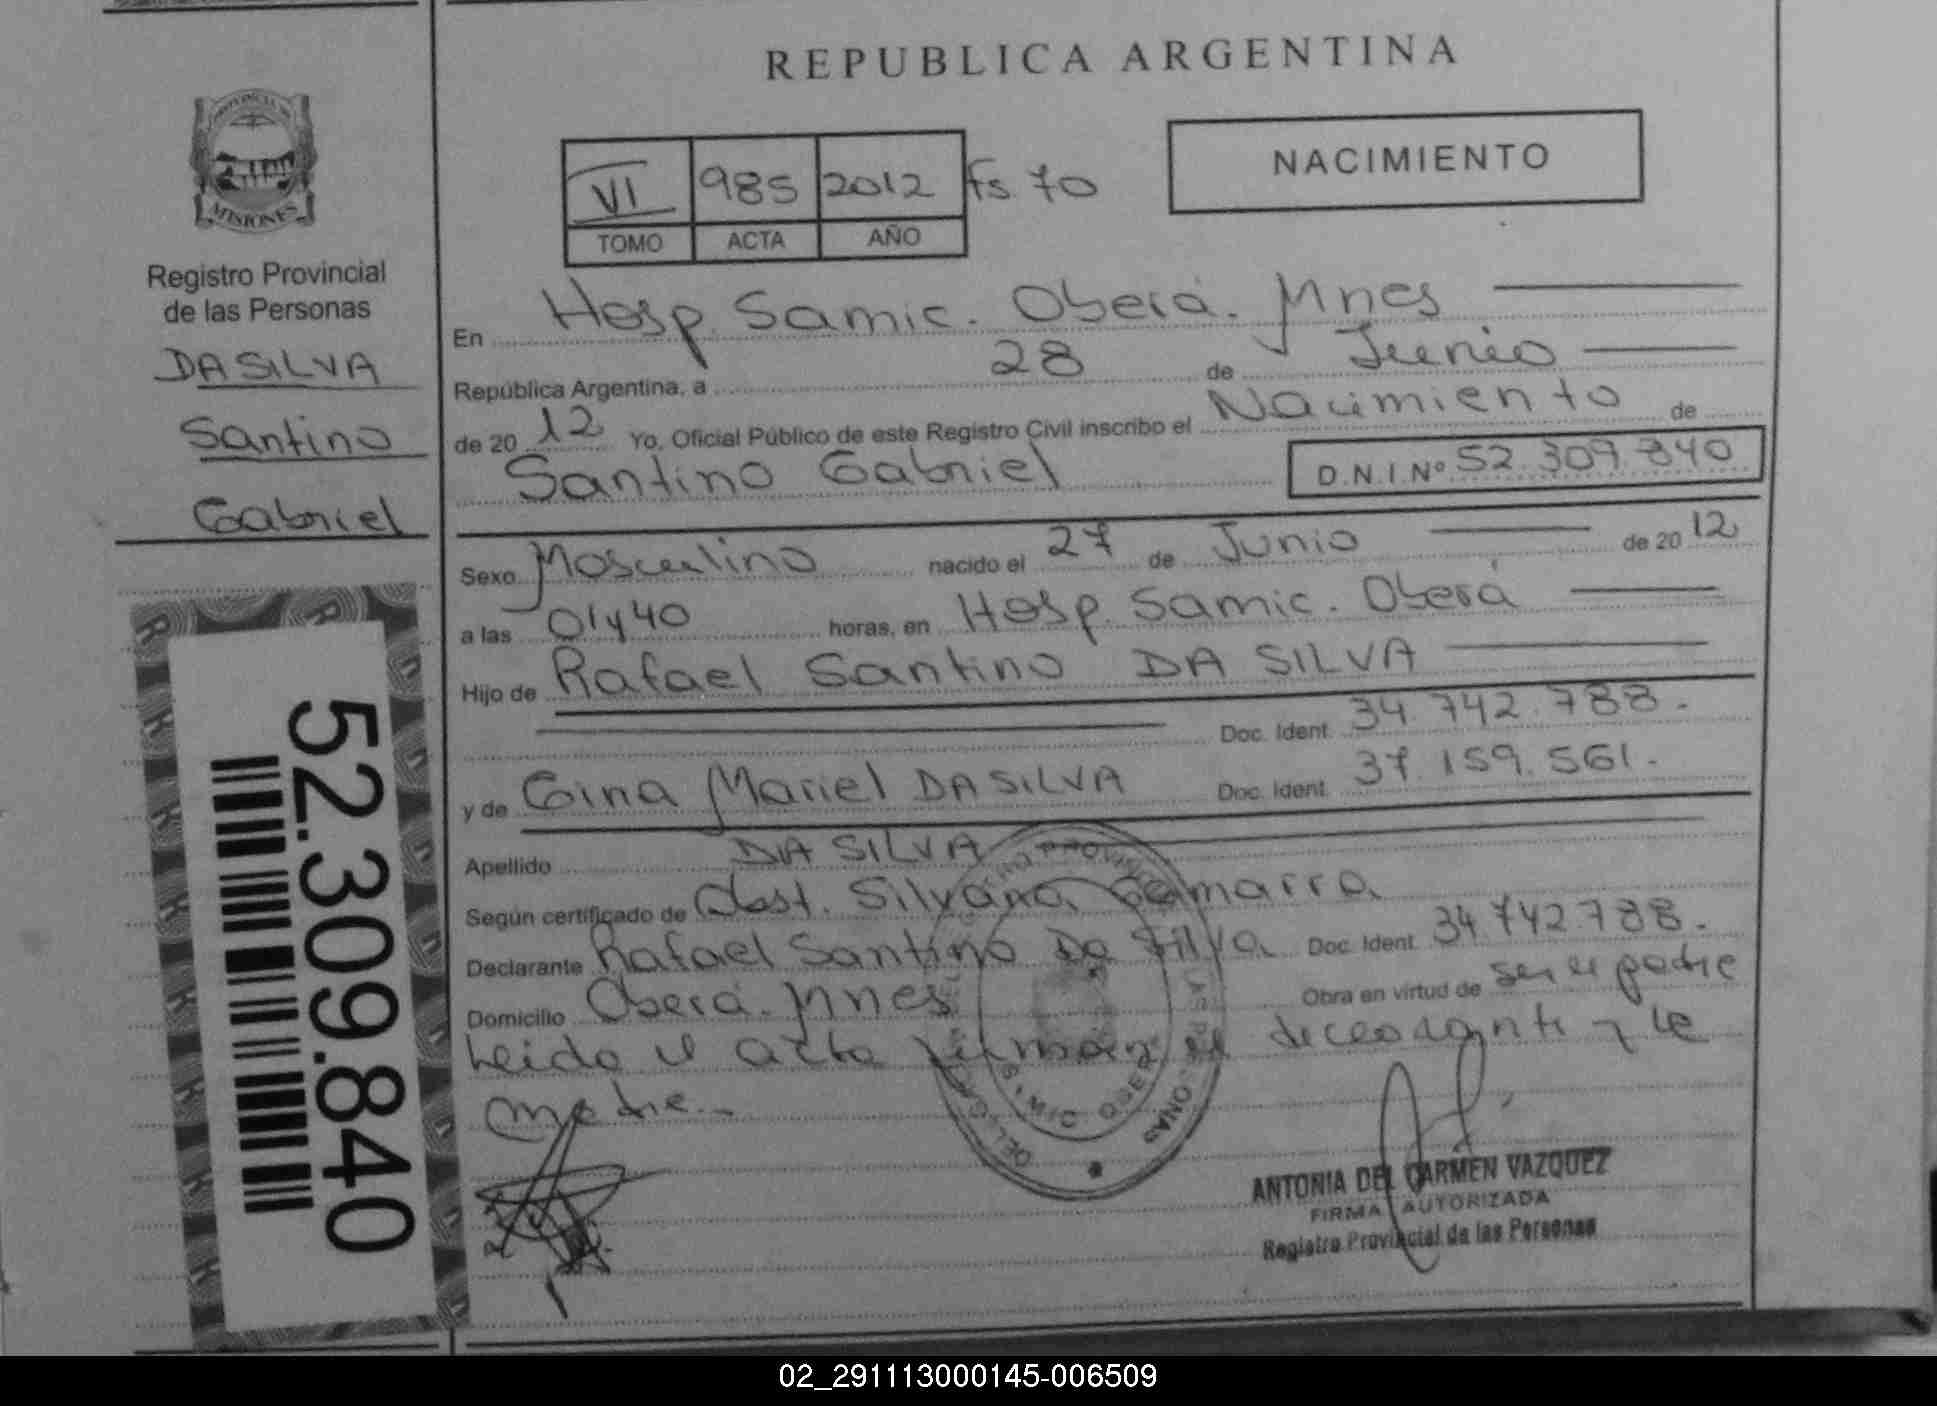 REPUBLICA ARGENTINA
PROVINCIA DE
MISIONES
Registro Provincial
de las Personas
DA SILVA
Santino
Gabriel
52.309.840
VI 985 2012 Fs. 70
TOMO ACTA AÑO
NACIMIENTO
En Hosp. Samic. Oberá. Mnes
República Argentina, a 28 de Junio
de 20 12 Yo, Oficial Público de este Registro Civil inscribo el Nacimiento de
Santino Gabriel D.N.I. Nº 52.309.840
Sexo Masculino nacido el 27 de Junio de 20 12
a las 01y40 horas, en Hosp. Samic. Oberá
Hijo de Rafael Santino DA SILVA
Doc. Ident. 34.742.788.
y de Gina Mariel DA SILVA Doc. Ident. 37.159.561.
Apellido DA SILVA
Según certificado de Obst. Silvana Gamarra
Declarante Rafael Santino Da Silva Doc. Ident. 34.742.788.
Domicilio Oberá. Mnes Obra en virtud de ser el padre
Leida el acta firman el declarante y la
madre.
ANTONIA DEL CARMEN VAZQUEZ
FIRMA AUTORIZADA
Registro Provincial de las Personas
02_291113000145-006509